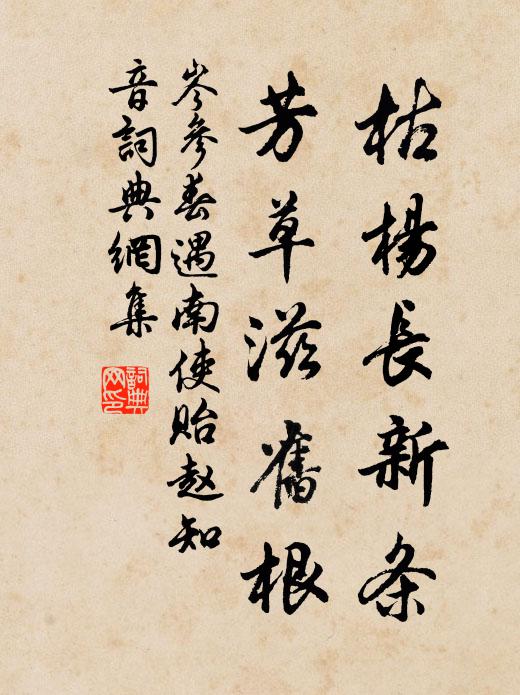 枯楊長新条
芳草滋舊根
岑參春遇南使貽赵知
音詞典網集
詞典網印